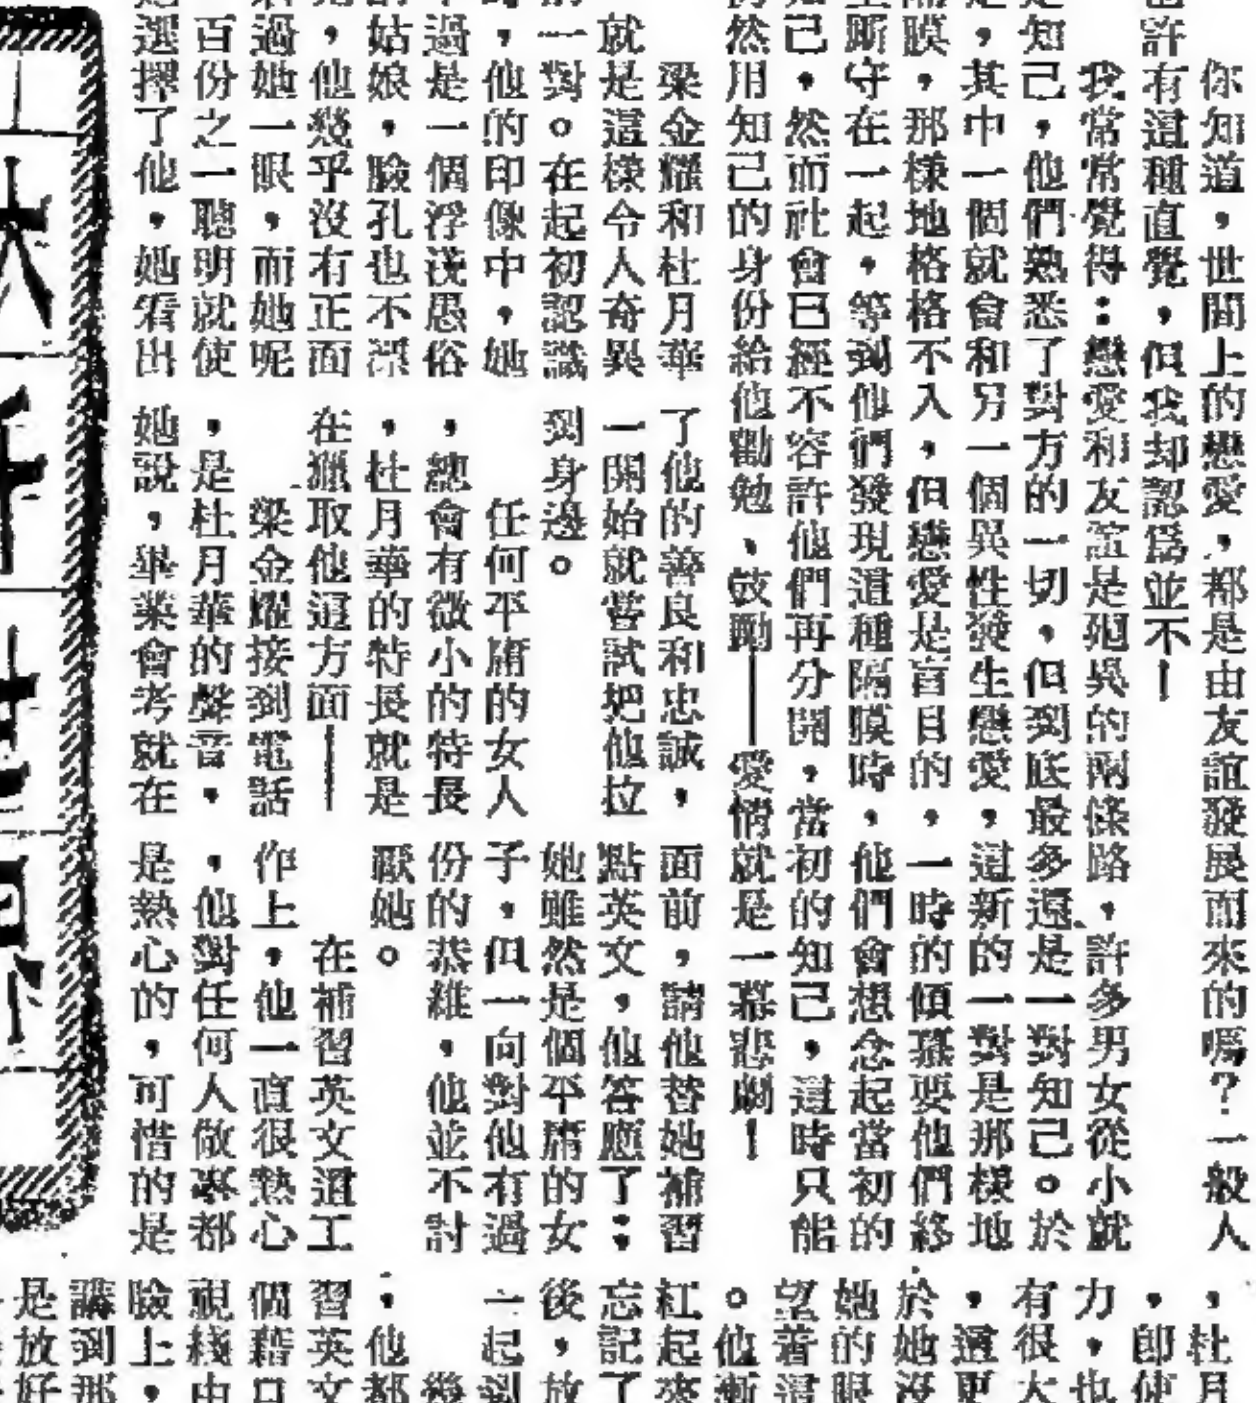 你知道，世間上的戀愛，都是由友誼發展而來的嗎？一般人
許有這種直覺，但我却認爲並不—
我常常覺得：戀愛和友誼是廻異的兩條路，許多男女從小就
知己，他們熟悉了對方的一切，但到底最多還是一對知己。於
，其中一個就會和另一個異性發生戀愛，這新的一對是那樣地
膜，那樣地格格不入，但戀愛是盲目的，一時的傾慕要他們終
廝守在一起，等到他們發現這種隔膜時，他們會想念起當初的
己，然而社會已經不容許他們再分開，當初的知己，這時只能
然用知己的身份給他勸勉、鼓勵——愛情就是一幕悲劇！
梁金耀和杜月華
就是這樣令人奇異
的一對。在起初認識
，他的印像中，她
過是一個浮淺愚俗
姑娘，臉孔也不漂
，他幾乎沒有正面
過她一眼，而她呢
百份之一聰明就使
選擇了他，她看出
了他的善良和忠誠，
一開始就嘗試把他拉
到身邊。
任何平庸的女人
，總會有微小的特長
，杜月華的特長就是
在獵取他這方面——
梁金耀接到電話
，是杜月華的聲音，
她說，畢業會考就在
面前，請他替她補習
點英文，他答應了；
她雖然是個平庸的女
子，但一向對他有過
份的恭維，他並不討
厭她。
在補習英文這工
作上，他一直很熱心
，他對任何人做事都
是熱心的，可惜的是
，杜月
，即使
力，也
有很大
，這更
於她沒
她的眼
望着這
。他漸
紅起來
忘記了
後，放
一起到
幾
，他都
習英文
個藉口
視綫由
臉上，
講到那
是放好